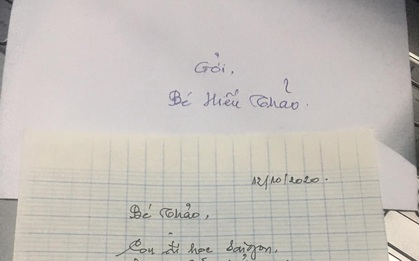 Gởi,
Bé Hiếu Thảo.
12/10/2020.
Bé Thảo,
Con đi học Saigon,